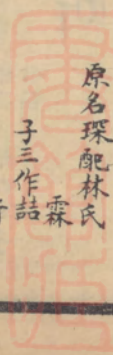 原名琛配林氏
霖
子三作喆